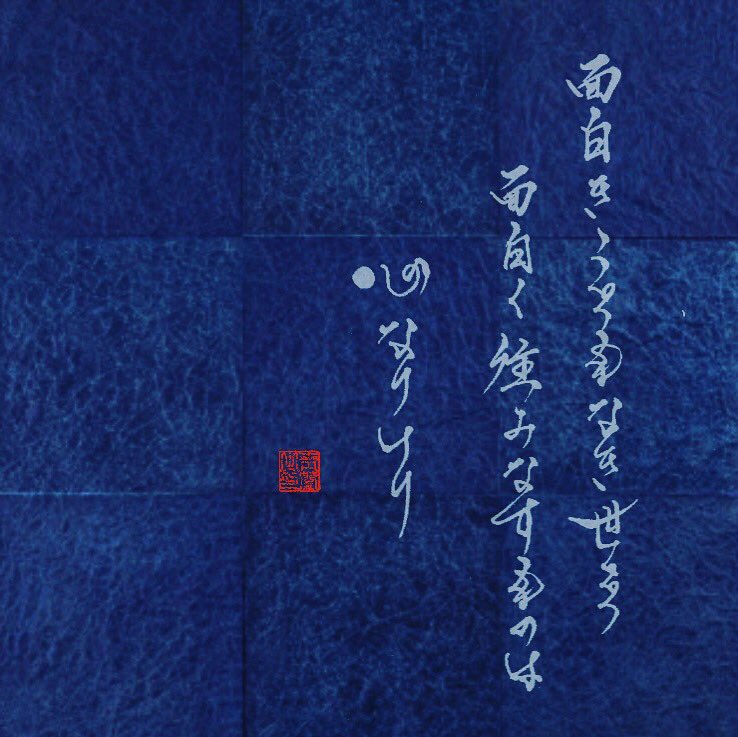 面白きこともなき世を
面白くみなすものは
心なりけり